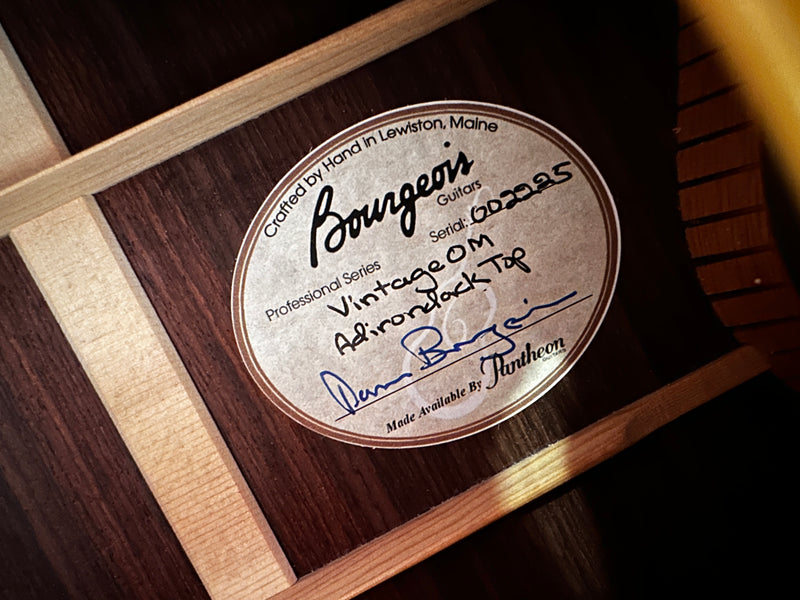 Crafted by Hand in Lewiston, Maine
Bourgeois
Guitars
Professional Series Serial: 002225
Vintage OM
Adirondack Top
Dana Bourgeois
Made Available By Pantheon
GUITARS